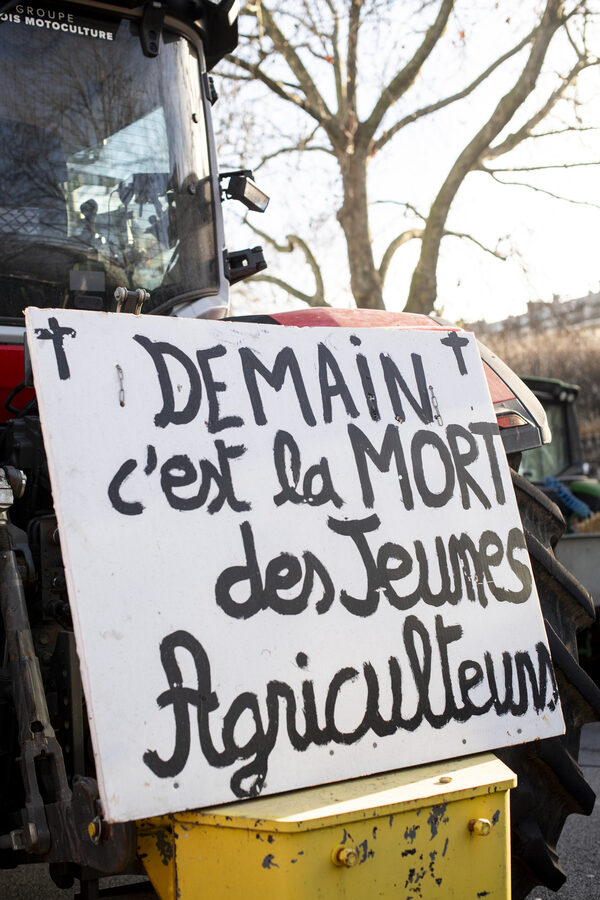 GROUPE
OIS MOTOCULTURE
DEMAIN
c'est la MORT
des Jeunes
Agriculteurs